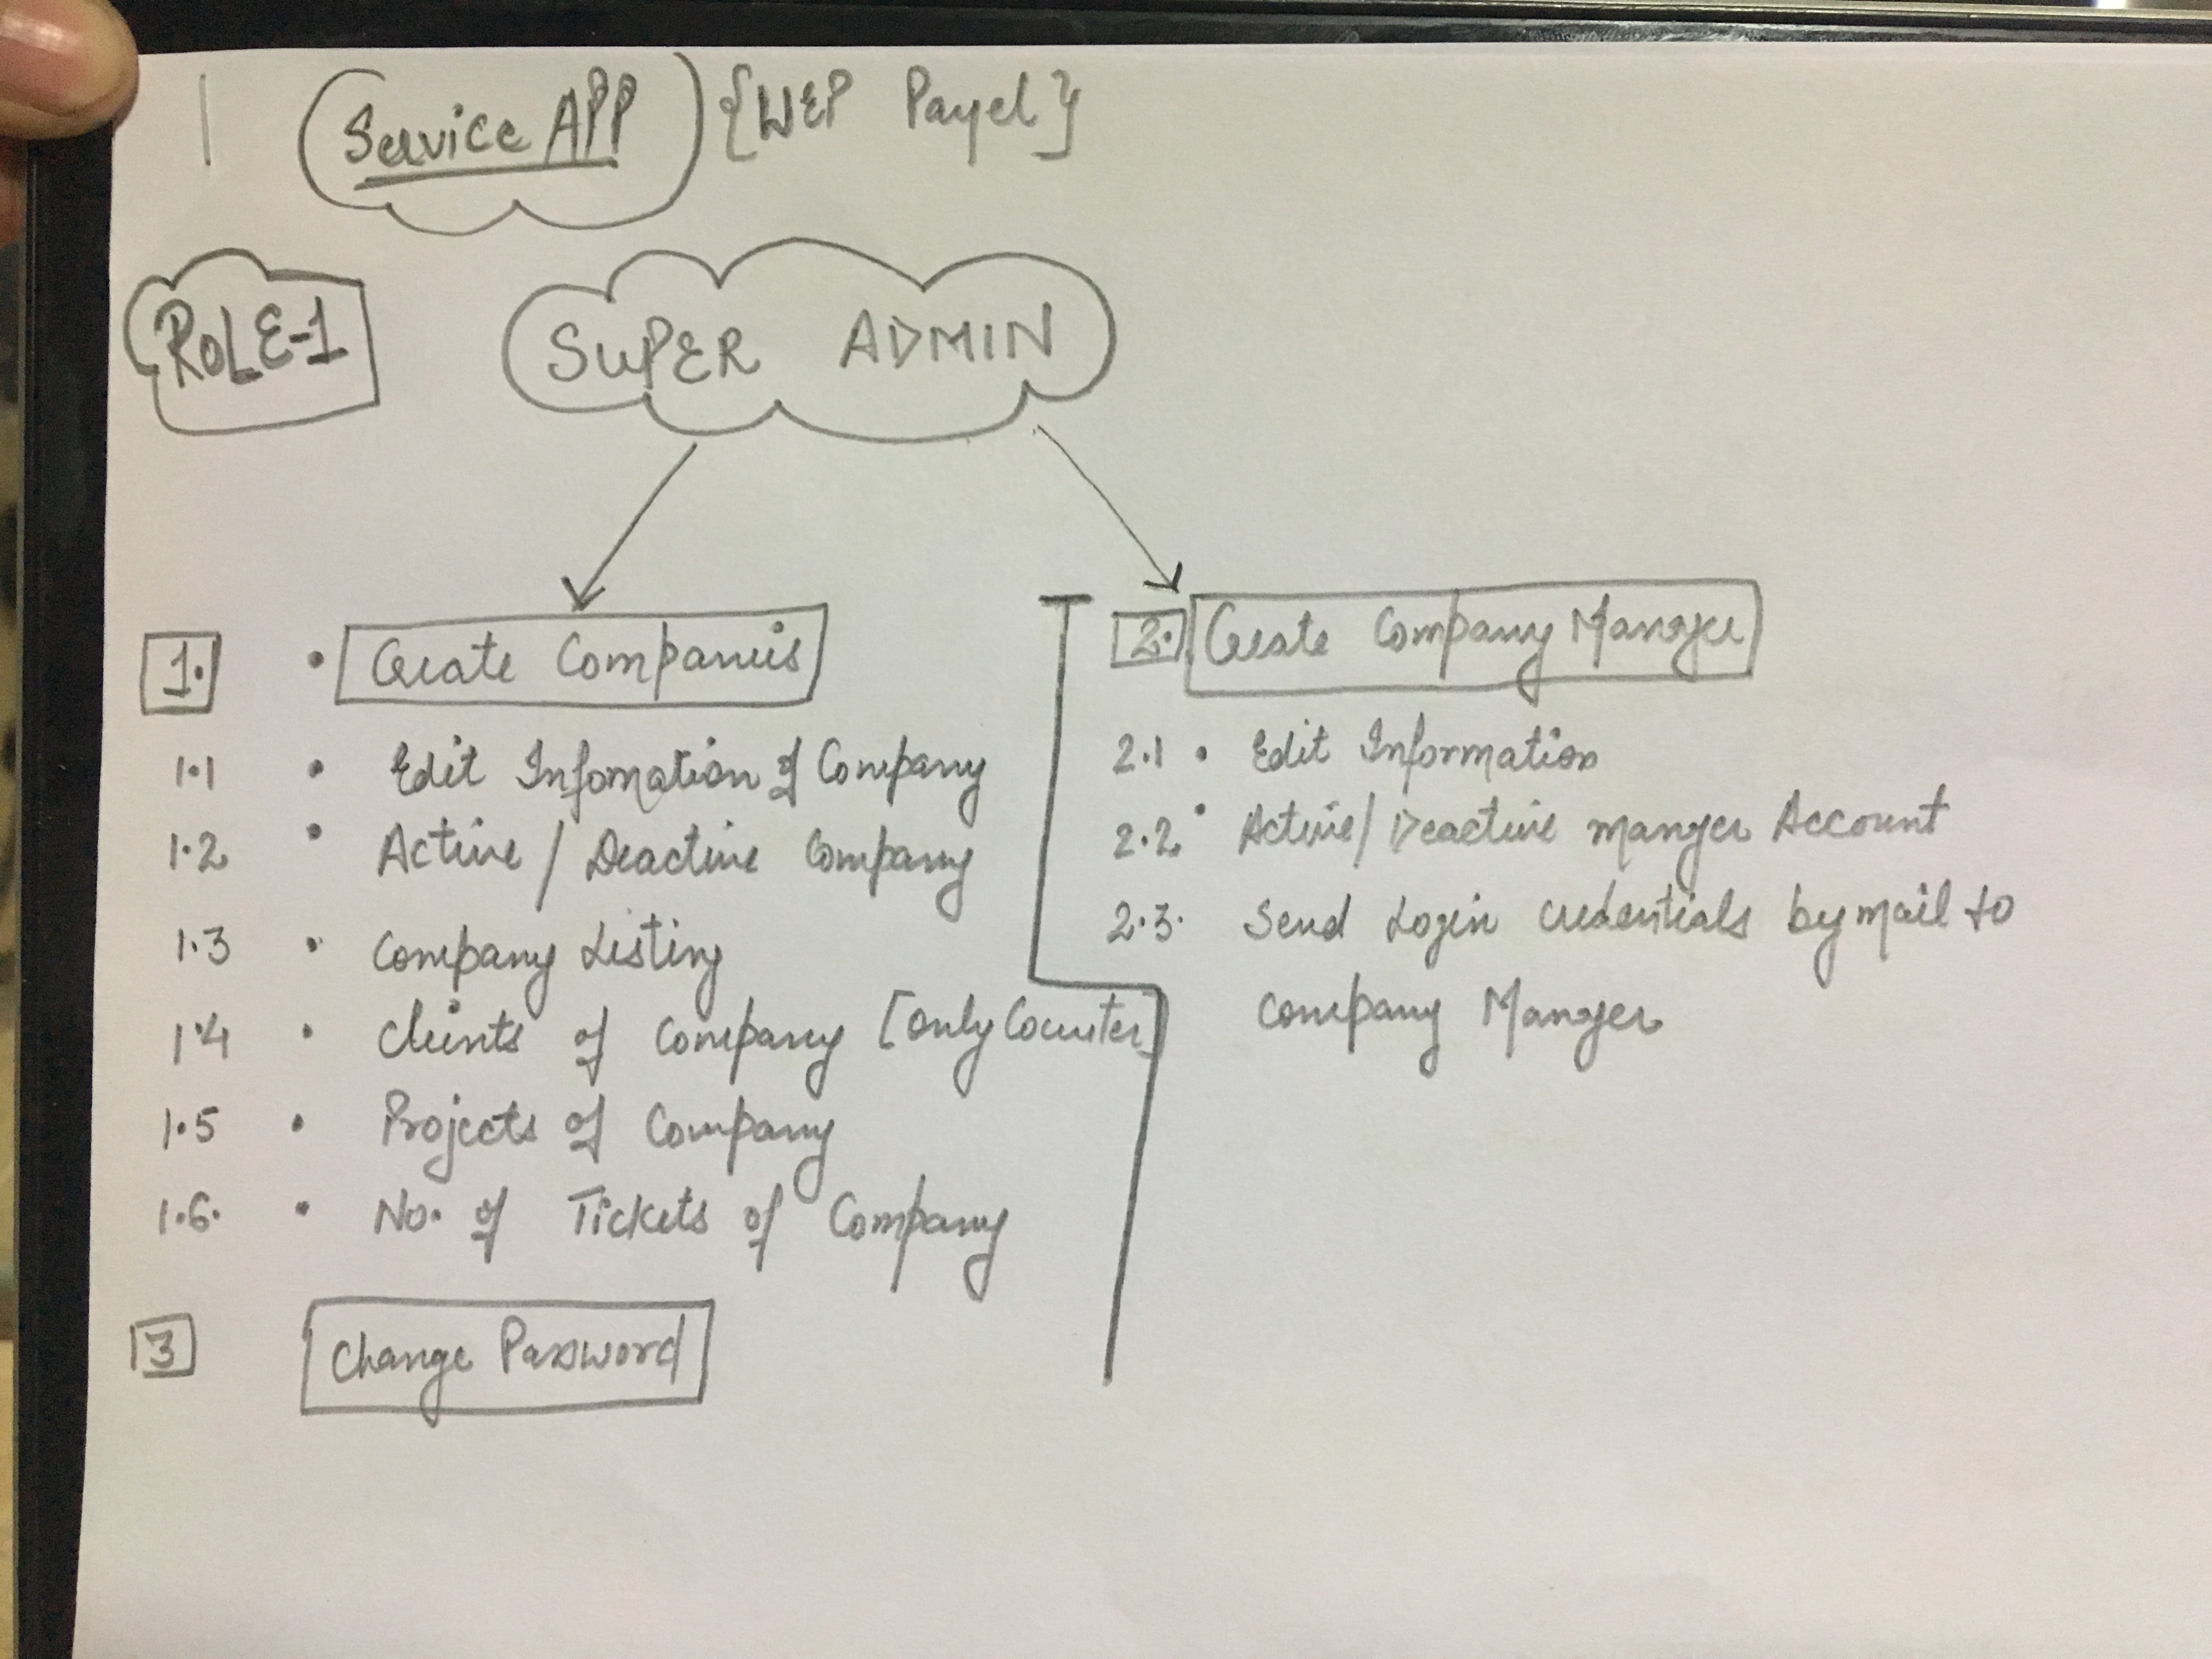 Service APP {WEP Payel}
ROLE-1
SUPER ADMIN
1. • Create Companies
1.1 • Edit Infomation of Company
1.2 • Active / Deactive Company
1.3 • Company Listing
1.4 • Clients of Company [only Counter]
1.5 • Projects of Company
1.6. • No. of Tickets of Company
3 Change Password
2. Create Company Manger
2.1 • Edit Information
2.2 • Active/Deactive manger Account
2.3. Send Login credentials by mail to
company Manger